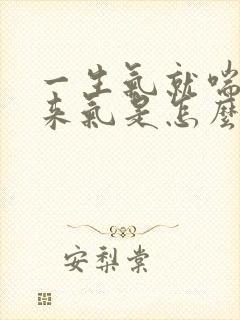 一生氣就喘
來氣是怎麼
安梨棠